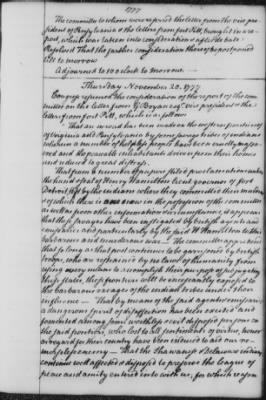 1777
The committee to whom were referred the letter from the vice pre-
sident of Pensylvania & the letter from fort Pitt, brought in a re-
port, which was taken into consideration & after debate
Resolved That the farther consideration thereof be postponed
till to morrow
Adjourned to 10 o'Clock to Morrow
Thursday November 20. 1777
Congress resumed the consideration of the report of the com-
mittee on the letter from G Bryan esqr vice president & the
letter from fort Pitt, which is as follows
That an inroad has been made on the western frontiers
of Virginia and Pensylvania by some savage tribes of indians
wherein a number of helpless people have been cruelly massa-
cred and the peaceable inhabitants driven from their homes
and reduced to great distress;
That from a number of papers filed & proclamations under
the hand & seal of Henry Hamilton lieut governor of fort
Detroit left by the indians where they committed their murders
of which there is one now in the possession of the committee
as well as from other information & circumstances, it appears
that these savages have been instigated by british agents and
emissaries and particularly by the said H Hamilton to this
barbarous and murderous war — The committee apprehend
that so long as that post continues to be garrisoned by british
troops, who are restrained by no laws of humanity from
using every mean to accomplish their purpose of subjugating
these states, those frontiers will be incessantly exposed to
the barbarous ravages of the indian tribes under their
influence — That by means of the said agents & emissaries
a dangerous spirit of disaffection has been excited and
fomented among some worthless & evil disposed persons on
the said frontiers, who lost to all sentiments of virtue, honor
or regard for their country have been induced to aid our re-
morseless enemy — That the Shawanese & Delaware indians
continue well affected & disposed to preserve the league of
peace and amity entered into with us; for which reason